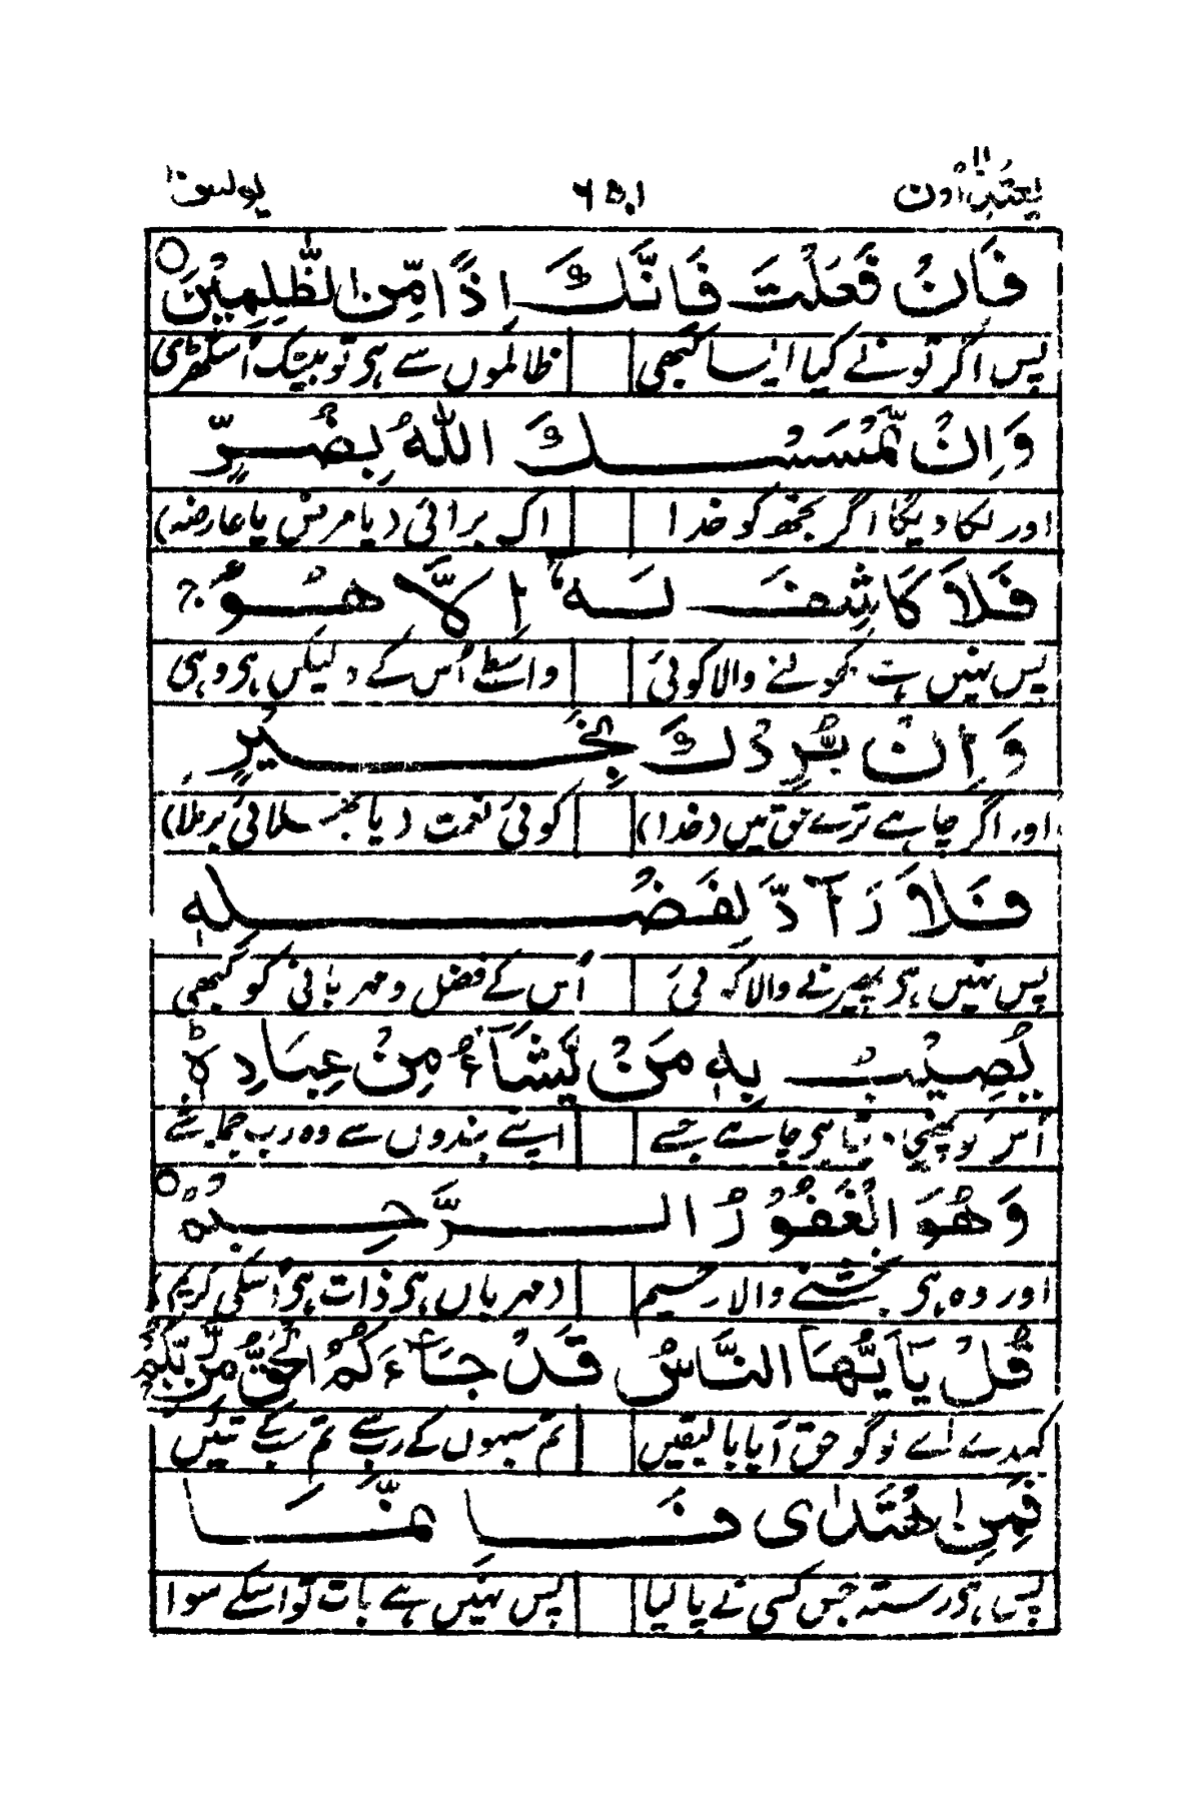 یعتذرون ۱۱ ۶۵۱ یونس ۱۰
فَاِنْ فَعَلْتَ فَاِنَّكَ اِذًا مِّنَ الظّٰلِمِیْنَ ○
پس اگر تو نے کیا ایسا کبھی ظالموں سے ہی تو بیشک اُس گھڑی
وَاِنْ یَّمْسَسْكَ اللّٰهُ بِضُرٍّ
اور لگا دیگا اگر تجھ کو خدا اک برائی (یا مرض یا عارضہ)
فَلَا كَاشِفَ لَهٗۤ اِلَّا هُوَ ۚ
پس نہیں ہے کھولنے والا کوئی واسطے اُس کے، لیکن ہی وہی
وَاِنْ یُّرِدْكَ بِخَیْرٍ
اور اگر چاہے ترے حق میں (خدا) کوئی نعمت (یا بھلائی برملا)
فَلَا رَآدَّ لِفَضْلِهٖ
پس نہیں ہی پھیرنے والا کوئی اُس کے فضل و مہربانی کو کبھی
یُصِیْبُ بِهٖ مَنْ یَّشَآءُ مِنْ عِبَادِهٖ ؕ
اُس کو پہنچاتا ہی چاہے جسے اپنے بندوں سے وہ رب
وَهُوَ الْغَفُوْرُ الرَّحِیْمُ ○
اور وہ ہی بخشنے والا رحیم (مہرباں ہی ذات ہی اُسکی کریم)
قُلْ یٰۤاَیُّهَا النَّاسُ قَدْ جَآءَكُمُ الْحَقُّ مِنْ رَّبِّكُمْ ۚ
کہدے اے لوگو حق آیا بالیقیں تم سبھوں کے رب سے تم سب کے تئیں
فَمَنِ اهْتَدٰی فَاِنَّمَا
پس ہی رستہ جس کسی نے پا لیا پس نہیں ہے بات تو اسکے سوا